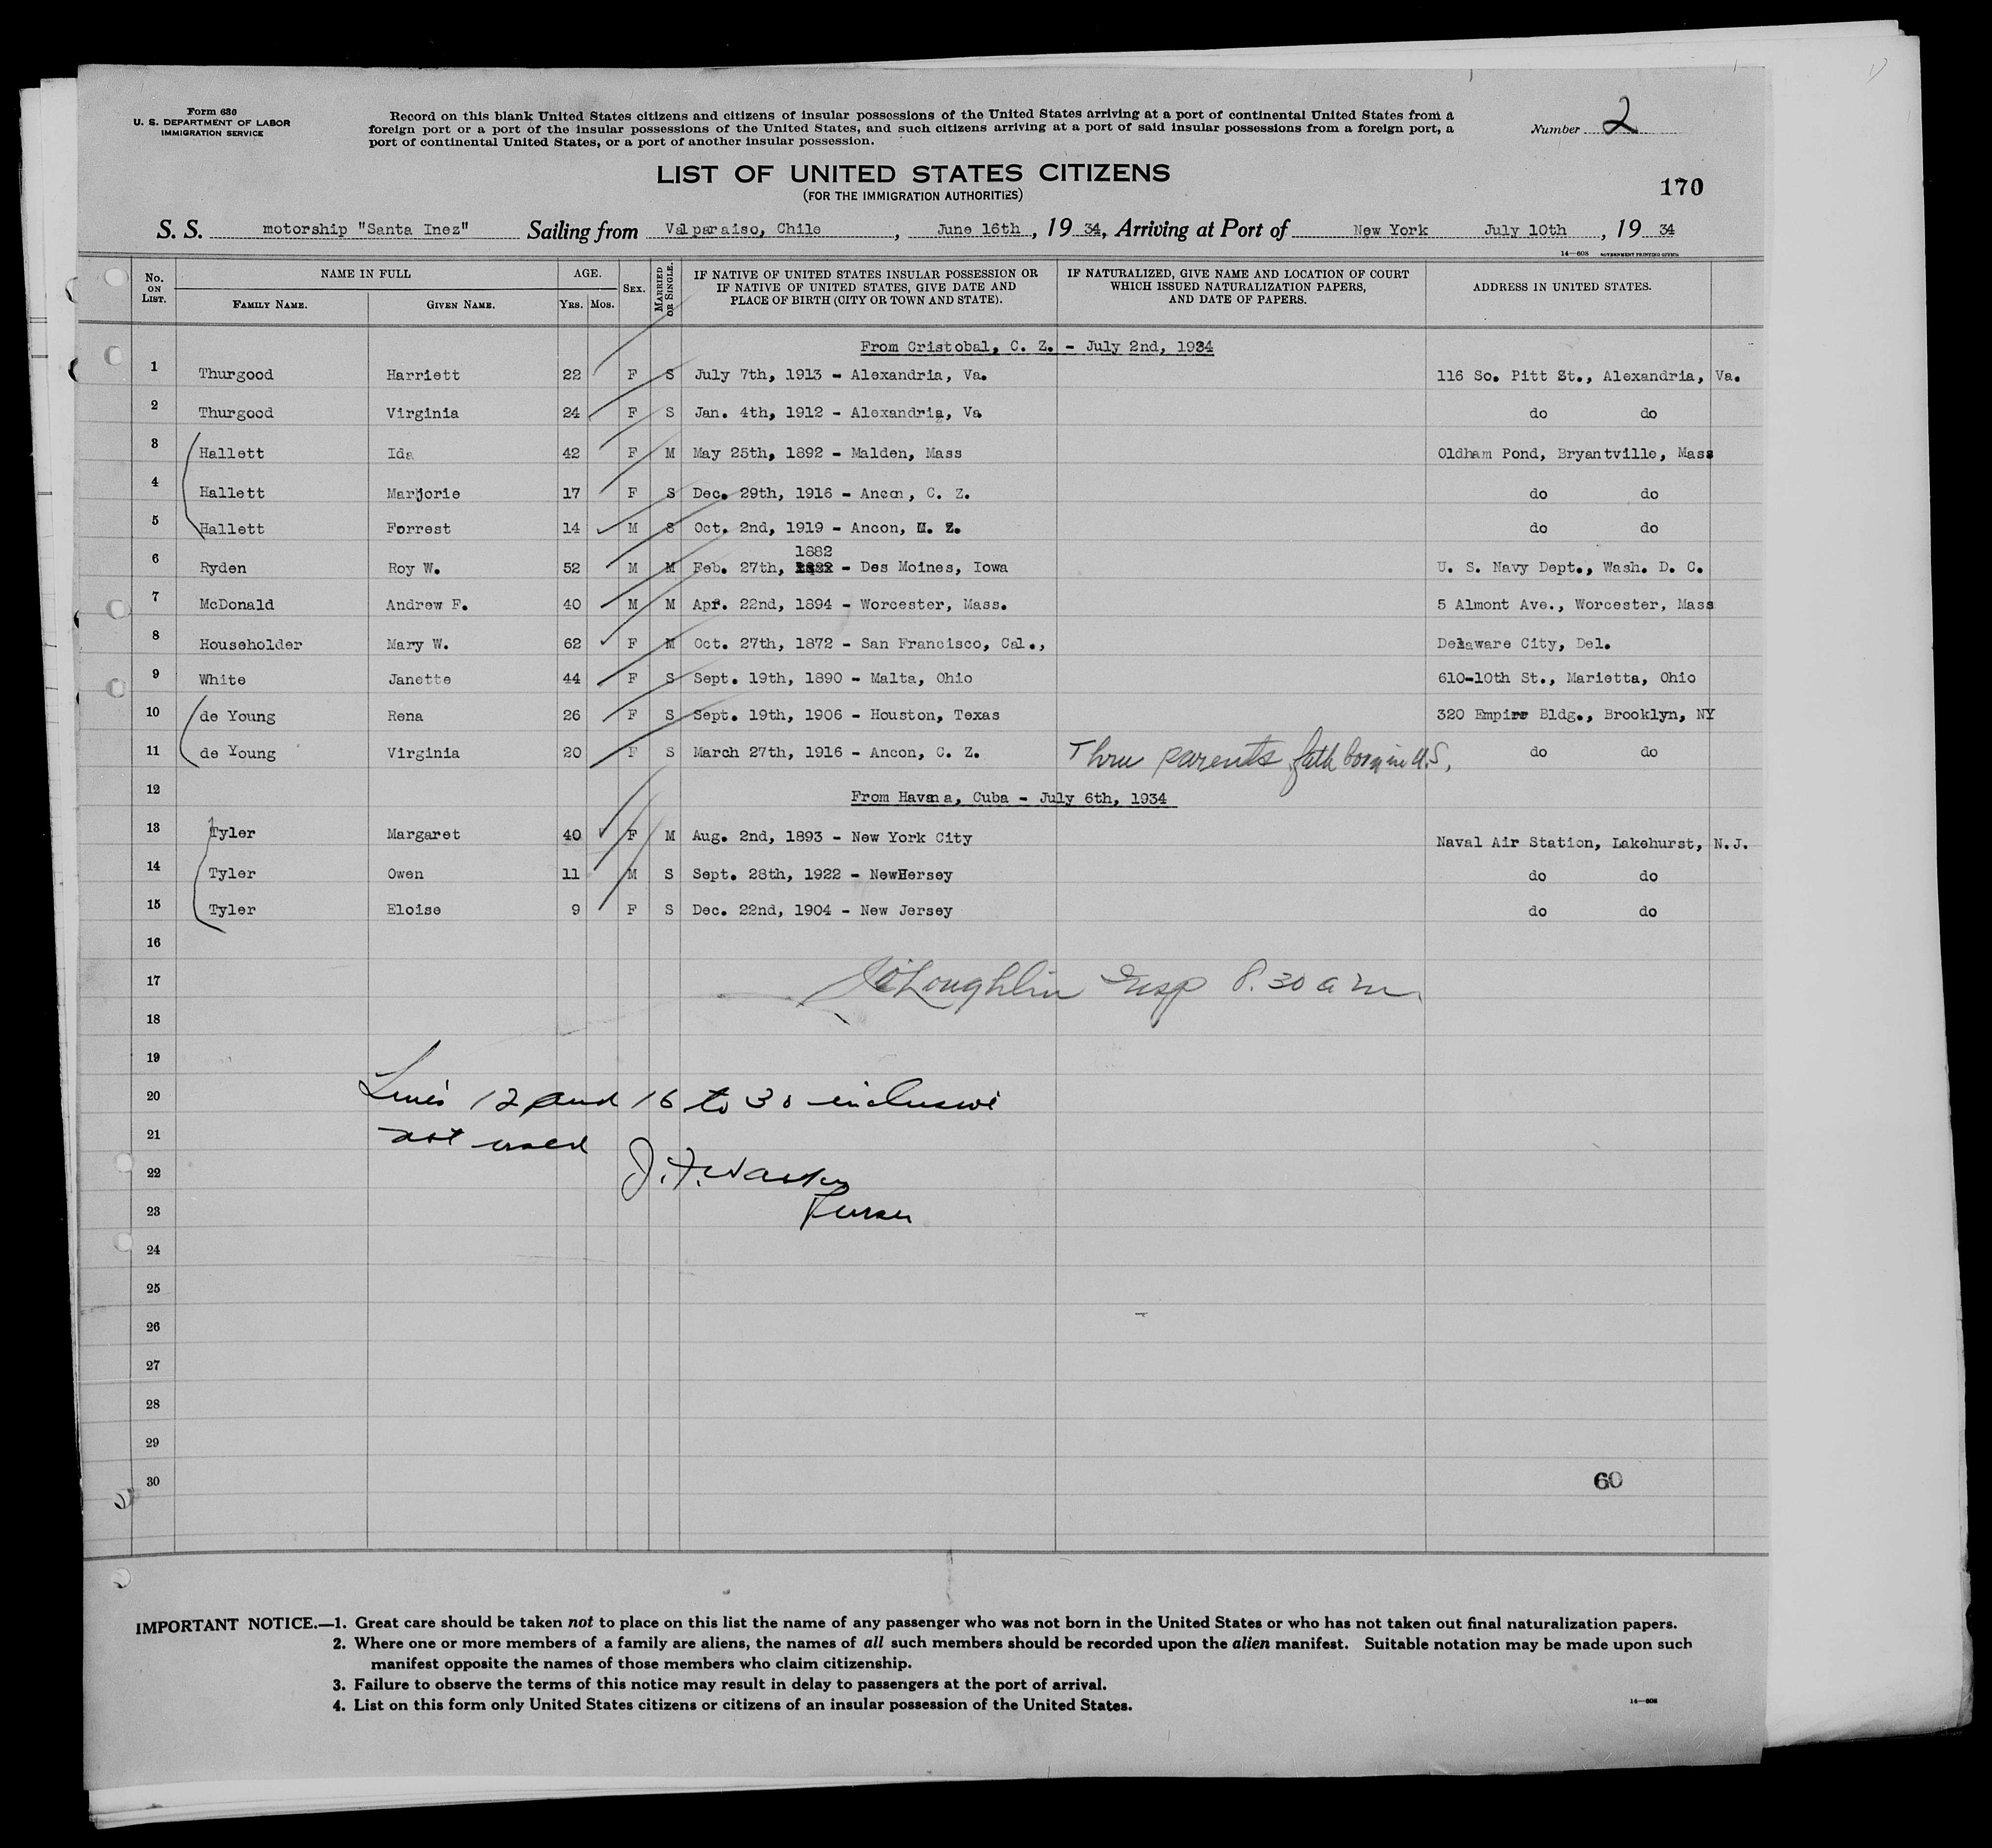 Form 630
U. S. DEPARTMENT OF LABOR
IMMIGRATION SERVICE
Record on this blank United States citizens and citizens of insular possessions of the United States arriving at a port of continental United States from a
foreign port or a port of the insular possessions of the United States, and such citizens arriving at a port of said insular possessions from a foreign port, a
port of continental United States, or a port of another insular possession.
Number 2
LIST OF UNITED STATES CITIZENS
(FOR THE IMMIGRATION AUTHORITIES)
170
S. S. motorship "Santa Inez" Sailing from Valparaiso, Chile, June 16th, 1934, Arriving at Port of New York July 10th, 1934
14—608 GOVERNMENT PRINTING OFFICE
No. ON LIST. NAME IN FULL FAMILY NAME. GIVEN NAME. AGE. YRS. MOS. SEX. MARRIED OR SINGLE. IF NATIVE OF UNITED STATES INSULAR POSSESSION OR IF NATIVE OF UNITED STATES, GIVE DATE AND PLACE OF BIRTH (CITY OR TOWN AND STATE). IF NATURALIZED, GIVE NAME AND LOCATION OF COURT WHICH ISSUED NATURALIZATION PAPERS, AND DATE OF PAPERS. ADDRESS IN UNITED STATES.
From Cristobal, C. Z. - July 2nd, 1934
1 Thurgood Harriett 22 F S July 7th, 1913 - Alexandria, Va. 116 So. Pitt St., Alexandria, Va.
2 Thurgood Virginia 24 F S Jan. 4th, 1912 - Alexandria, Va do do
3 Hallett Ida 42 F M May 25th, 1892 - Malden, Mass Oldham Pond, Bryantville, Mass
4 Hallett Marjorie 17 F S Dec. 29th, 1916 - Ancon, C. Z. do do
5 Hallett Forrest 14 M S Oct. 2nd, 1919 - Ancon, Z. do do
1882
6 Ryden Roy W. 52 M M Feb. 27th, - Des Moines, Iowa U. S. Navy Dept., Wash. D. C.
7 McDonald Andrew F. 40 M M Apr. 22nd, 1894 - Worcester, Mass. 5 Almont Ave., Worcester, Mass
8 Householder Mary W. 62 F M Oct. 27th, 1872 - San Francisco, Cal., Delaware City, Del.
9 White Janette 44 F S Sept. 19th, 1890 - Malta, Ohio 610-10th St., Marietta, Ohio
10 de Young Rena 26 F S Sept. 19th, 1906 - Houston, Texas 320 Empire Bldg., Brooklyn, NY
11 de Young Virginia 20 F S March 27th, 1916 - Ancon, C. Z. Thru parents, fath born in U.S. do do
12 From Havana, Cuba - July 6th, 1934
13 Tyler Margaret 40 F M Aug. 2nd, 1893 - New York City Naval Air Station, Lakehurst, N.J.
14 Tyler Owen 11 M S Sept. 28th, 1922 - NewHersey do do
15 Tyler Eloise 9 F S Dec. 22nd, 1904 - New Jersey do do
16
17 O'Loughlin Insp 8.30 a m
18
19
20 Lines 12 and 16 to 30 inclusive
21 not used
22 J. F.
23 Purser
24
25
26
27
28
29
30 60
IMPORTANT NOTICE.—1. Great care should be taken not to place on this list the name of any passenger who was not born in the United States or who has not taken out final naturalization papers.
2. Where one or more members of a family are aliens, the names of all such members should be recorded upon the alien manifest. Suitable notation may be made upon such
manifest opposite the names of those members who claim citizenship.
3. Failure to observe the terms of this notice may result in delay to passengers at the port of arrival.
4. List on this form only United States citizens or citizens of an insular possession of the United States.
14—608